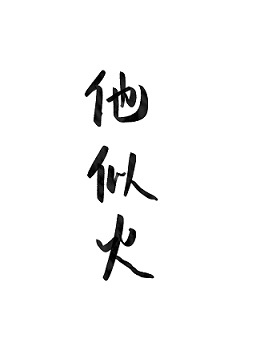 他似火